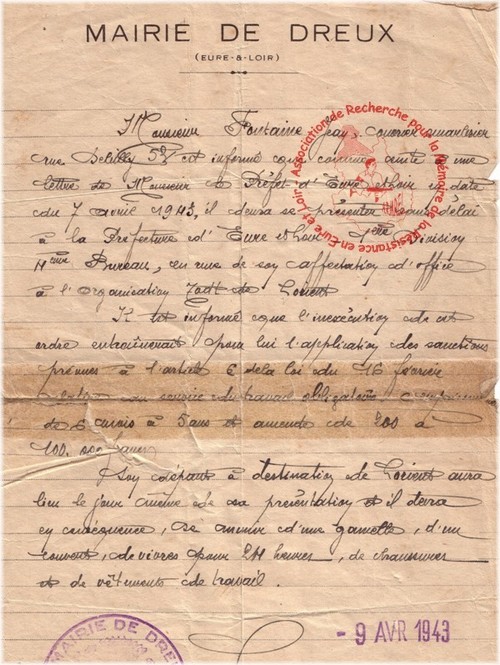 MAIRIE DE DREUX
(EURE-&-LOIR)
Association de Recherche pour la Mémoire de la Résistance en Eure et Loir
Monsieur Fontaine
rue est informé que comme suite à une
lettre de Monsieur le Préfet d'Eure et Loir en date
du 7 avril 1943, il devra se présenter sans délai
à la Préfecture d'Eure et Loir, 1ère Division
Bureau, en vue de son affectation d'office
à l'Organisation Todt de Lorient
Il est informé que l'inexécution de cet
ordre entraînerait pour lui l'application des sanctions
prévues à l'article 6 de la loi du 16 février
du service du travail obligatoire
de 6 mois à 5 ans et amende de 200 à
100.000 francs
Son départ à destination de Lorient aura
lieu le jour même de sa présentation et il devra
en conséquence, se munir d'une gamelle, d'un
couvert, de vivres pour 24 heures, de chaussures
et de vêtements de travail.
- 9 AVR 1943
MAIRIE DE DREUX